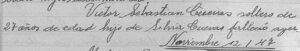 Victor Sebastian Cuevas soltero de
27 años de edad hijo de Silvia Cuevas fallecio ayer
Noviembre 12 1.47